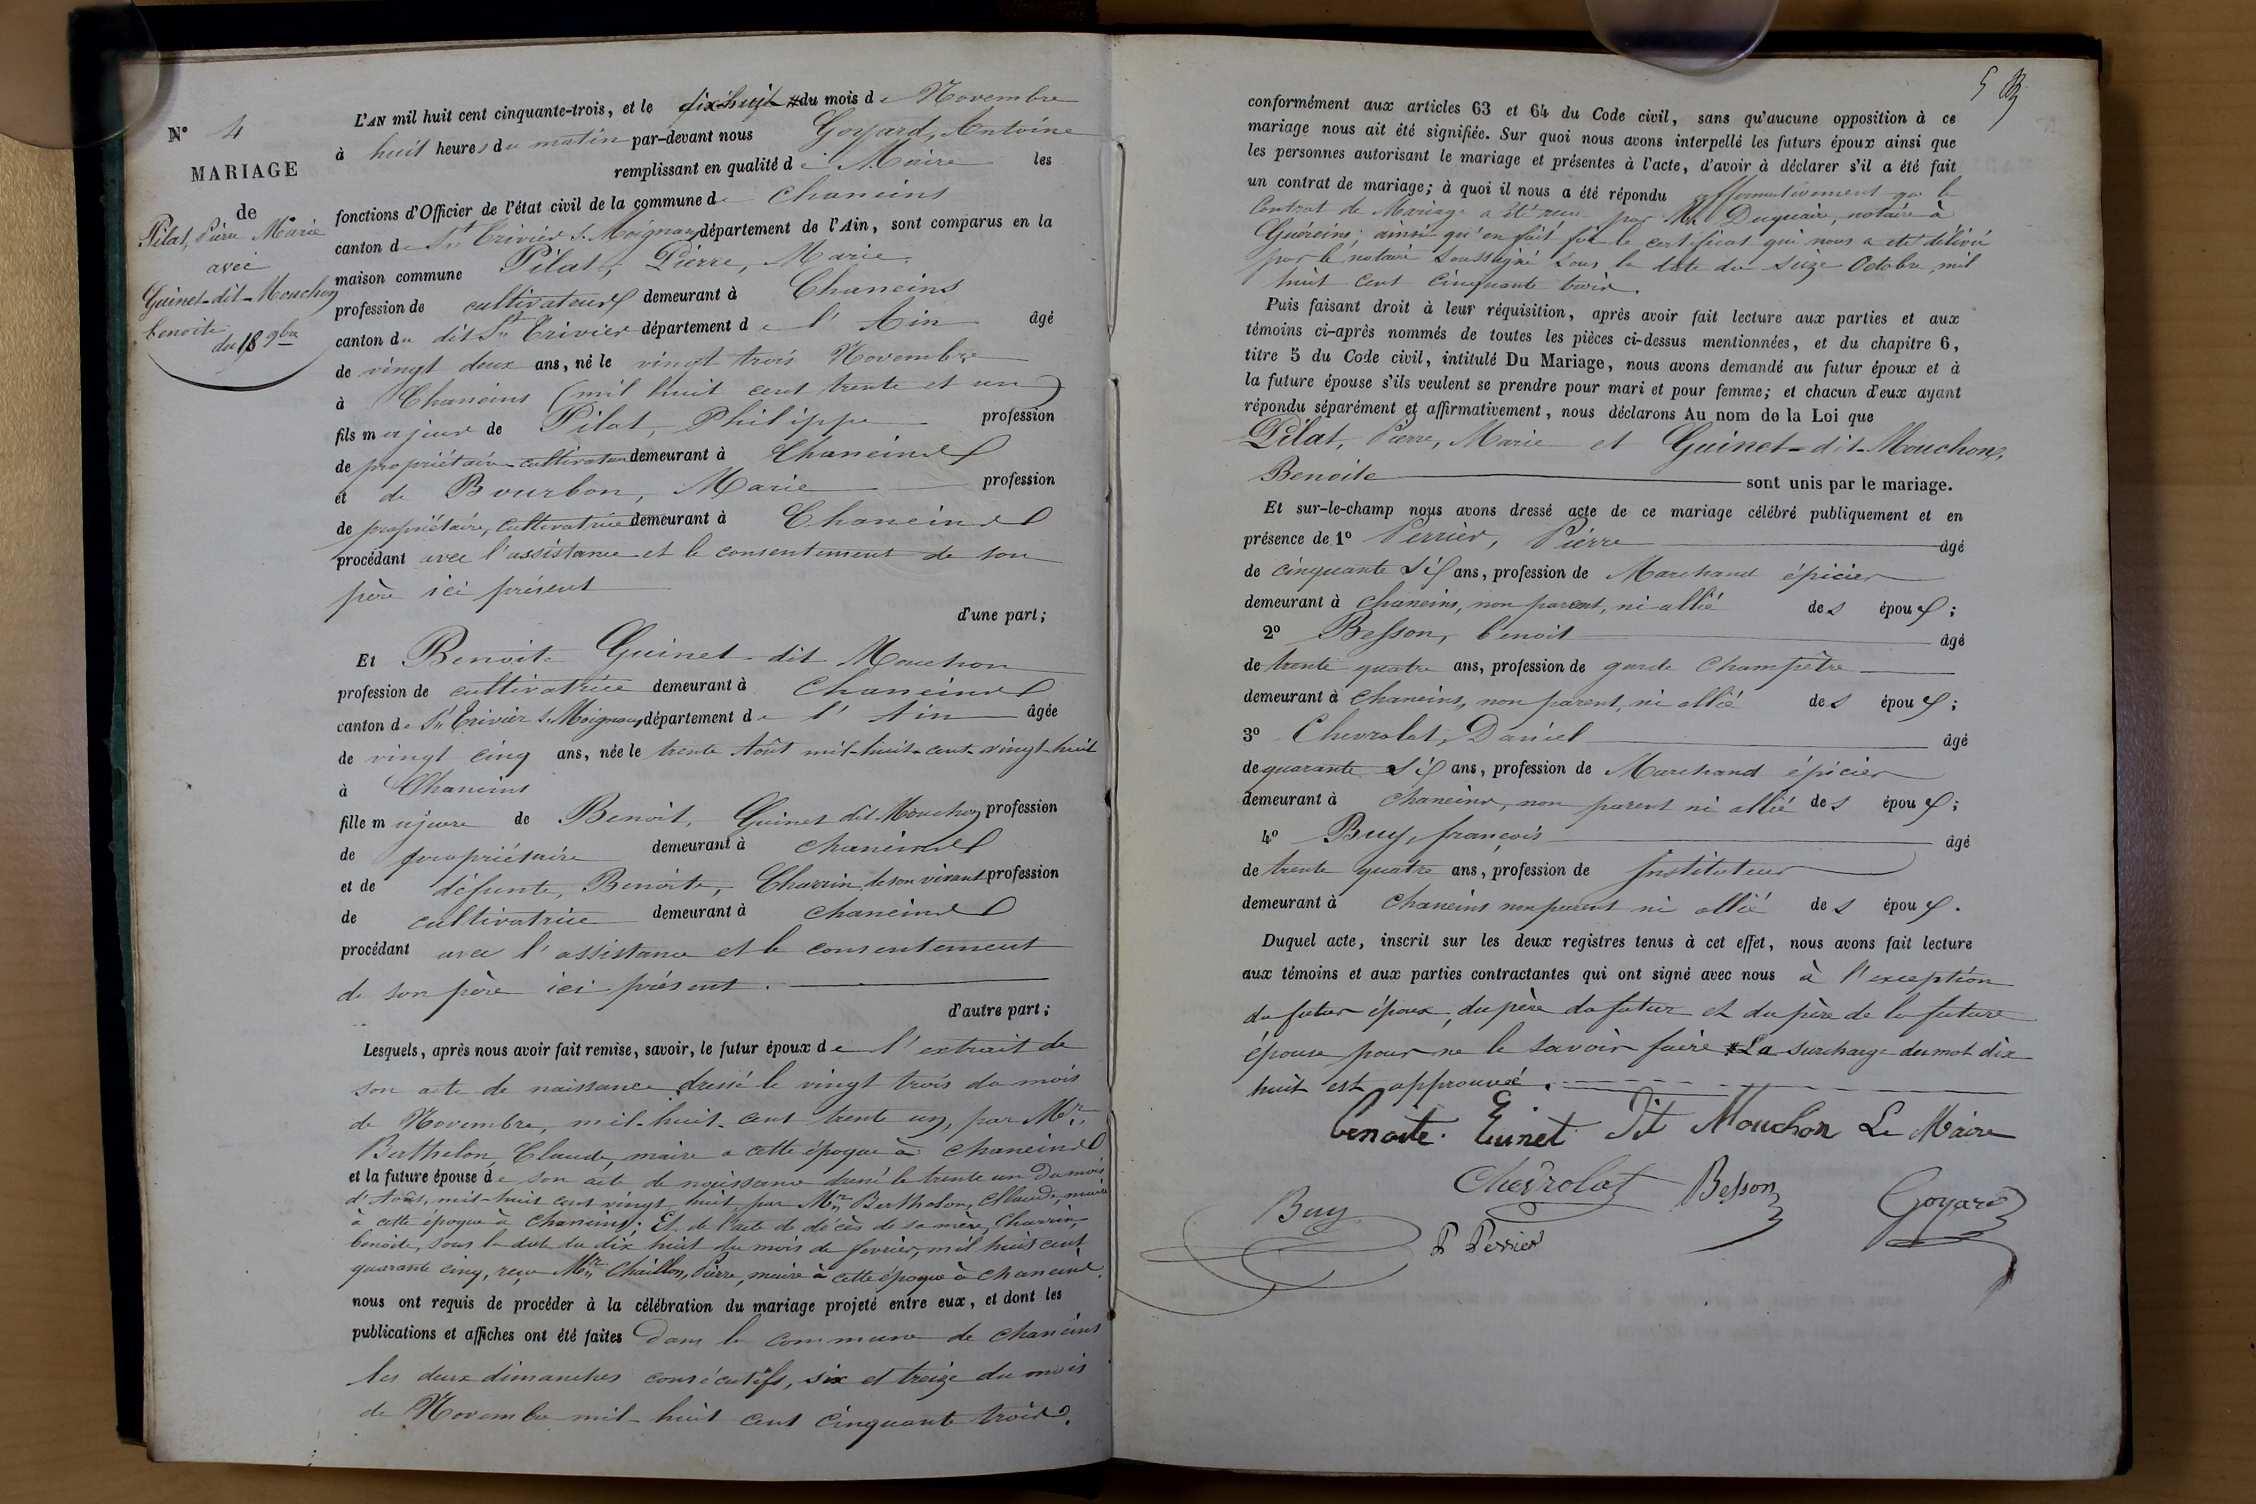 N° 4
MARIAGE
de
Pilat, Pierre Marie
avec
Guinet-dit-Mouchon
benoite
du 18 9bre
L'AN mil huit cent cinquante-trois, et le dix-huit # du mois de Novembre
à huit heures du matin par-devant nous Goyard, Antoine
remplissant en qualité de Maire les
fonctions d'Officier de l'état civil de la commune de Chaneins
canton de St Trivier s. Moignans département de l'Ain, sont comparus en la
maison commune Pilat, Pierre, Marie
profession de cultivateur demeurant à Chaneins
canton du dit St Trivier département de l'Ain âgé
de vingt deux ans, né le vingt trois Novembre
à Chaneins (mil huit cent trente et un)
fils majeur de Pilat, Philippe profession
de propriétaire-cultivateur demeurant à Chaneins
et de Bourbon, Marie profession
de propriétaire, cultivatrice demeurant à Chaneins
procédant avec l'assistance et le consentement de son
père ici présent
d'une part;
Et Benoite Guinet-dit Mouchon
profession de cultivatrice demeurant à Chaneins
canton de St Trivier s. Moignans département de l'Ain âgée
de vingt cinq ans, née le trente Août mil-huit-cent-vingt-huit
à Chaneins
fille majeure de Benoit, Guinet dit Mouchon profession
de propriétaire demeurant à Chaneins
et de défunte, Benoite, Charrin, de son vivant profession
de cultivatrice demeurant à Chaneins
procédant avec l'assistance et le consentement
de son père ici présent.
d'autre part;
Lesquels, après nous avoir fait remise, savoir, le futur époux de l'extrait de
son acte de naissance dressé le vingt trois du mois
de Novembre, mil-huit-cent trente un, par Mr
Berthelon, Claude, maire a cette époque à Chaneins
et la future épouse de son acte de naissance dressé le trente un du mois
d'Août, mil-huit cent vingt huit par Mr Berthelon, Claude, maire
à cette époque à Chaneins; Et de l'acte de décès de sa mère, Charrin,
benoite, sous la date du dix huit du mois de février, mil huit cent
quarante cinq, reçu Mr Chaillon, Pierre, maire à cette époque à Chaneins.
nous ont requis de procéder à la célébration du mariage projeté entre eux, et dont les
publications et affiches ont été faites dans la commune de Chaneins
les deux dimanches consécutifs, six et treize du mois
de Novembre mil-huit cent cinquante trois.
5
conformément aux articles 63 et 64 du Code civil, sans qu'aucune opposition à ce
mariage nous ait été signifiée. Sur quoi nous avons interpellé les futurs époux ainsi que
les personnes autorisant le mariage et présentes à l'acte, d'avoir à déclarer s'il a été fait
un contrat de mariage; à quoi il nous a été répondu affirmativement que le
Contrat de Mariage a été reçu par Me Duquaire, notaire à
Guéreins; ainsi qu'en fait foi le certificat qui nous a été délivré
par le notaire soussigné sous la date du seize Octobre mil
huit cent cinquante trois.
Puis faisant droit à leur réquisition, après avoir fait lecture aux parties et aux
témoins ci-après nommés de toutes les pièces ci-dessus mentionnées, et du chapitre 6,
titre 5 du Code civil, intitulé Du Mariage, nous avons demandé au futur époux et à
la future épouse s'ils veulent se prendre pour mari et pour femme; et chacun d'eux ayant
répondu séparément et affirmativement, nous déclarons Au nom de la Loi que
Pilat, Pierre, Marie et Guinet-dit-Mouchon,
Benoite sont unis par le mariage.
Et sur-le-champ nous avons dressé acte de ce mariage célébré publiquement et en
présence de 1° Perrier, Pierre âgé
de cinquante six ans, profession de Marchand épicier
demeurant à Chaneins, non parent, ni allié des époux;
2° Besson, benoit âgé
de trente quatre ans, profession de garde champêtre
demeurant à Chaneins, non parent, ni allié des époux;
3° Chevrolat, Daniel âgé
de quarante six ans, profession de Marchand épicier
demeurant à Chaneins, non parent ni allié des époux;
4° Buy, françois âgé
de trente quatre ans, profession de Instituteur
demeurant à Chaneins non parent ni allié des époux.
Duquel acte, inscrit sur les deux registres tenus à cet effet, nous avons fait lecture
aux témoins et aux parties contractantes qui ont signé avec nous à l'exception
du futur époux, du père du futur et du père de la future
épouse pour ne le savoir faire # La surcharge du mot dix-
huit est approuvée.
benoite. Guinet Dit Mouchon Le Maire
Chevrolat Besson Goyard
Buy
P Perrier